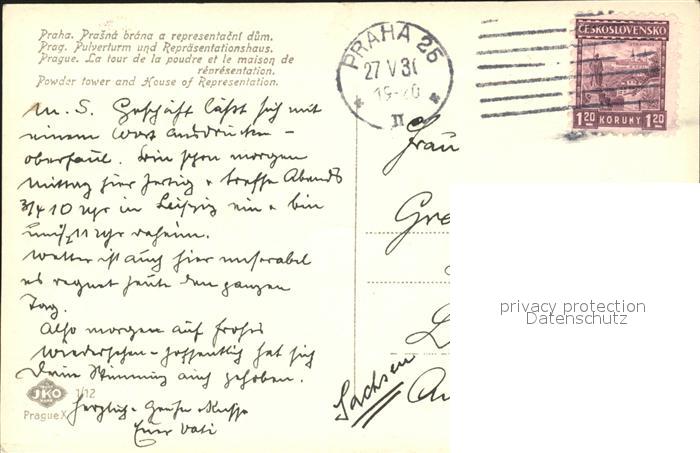 Praha. Prašná brána a representační dům.
Prag. Pulverturm und Repräsentationshaus.
Prague. La tour de la poudre et le maison de
réprésentation.
Powder tower and House of Representation.
PRAHA 25
27 V 31
19-20
II
ČESKOSLOVENSKO
1 20 KORUNY 1 20
M. S. Geschäft läßt sich mit
einem Wort ausdrücken –
oberfaul. Bin schon morgen
Mittag hier fertig + treffe Abends
3/4 10 Uhr in Leipzig ein + bin
11 Uhr daheim.
Wetter ist auch hier miserabel
es regnet heute den ganzen
Tag.
Also morgen auf frohes
Wiedersehen – hoffentlich hat sich
Deine Stimmung auch gehoben.
Herzlich. Grüße + Küsse
Euer Vati
Frau
Gre
L
Sachsen
An
privacy protection
Datenschutz
JKO
1/12
Prague X